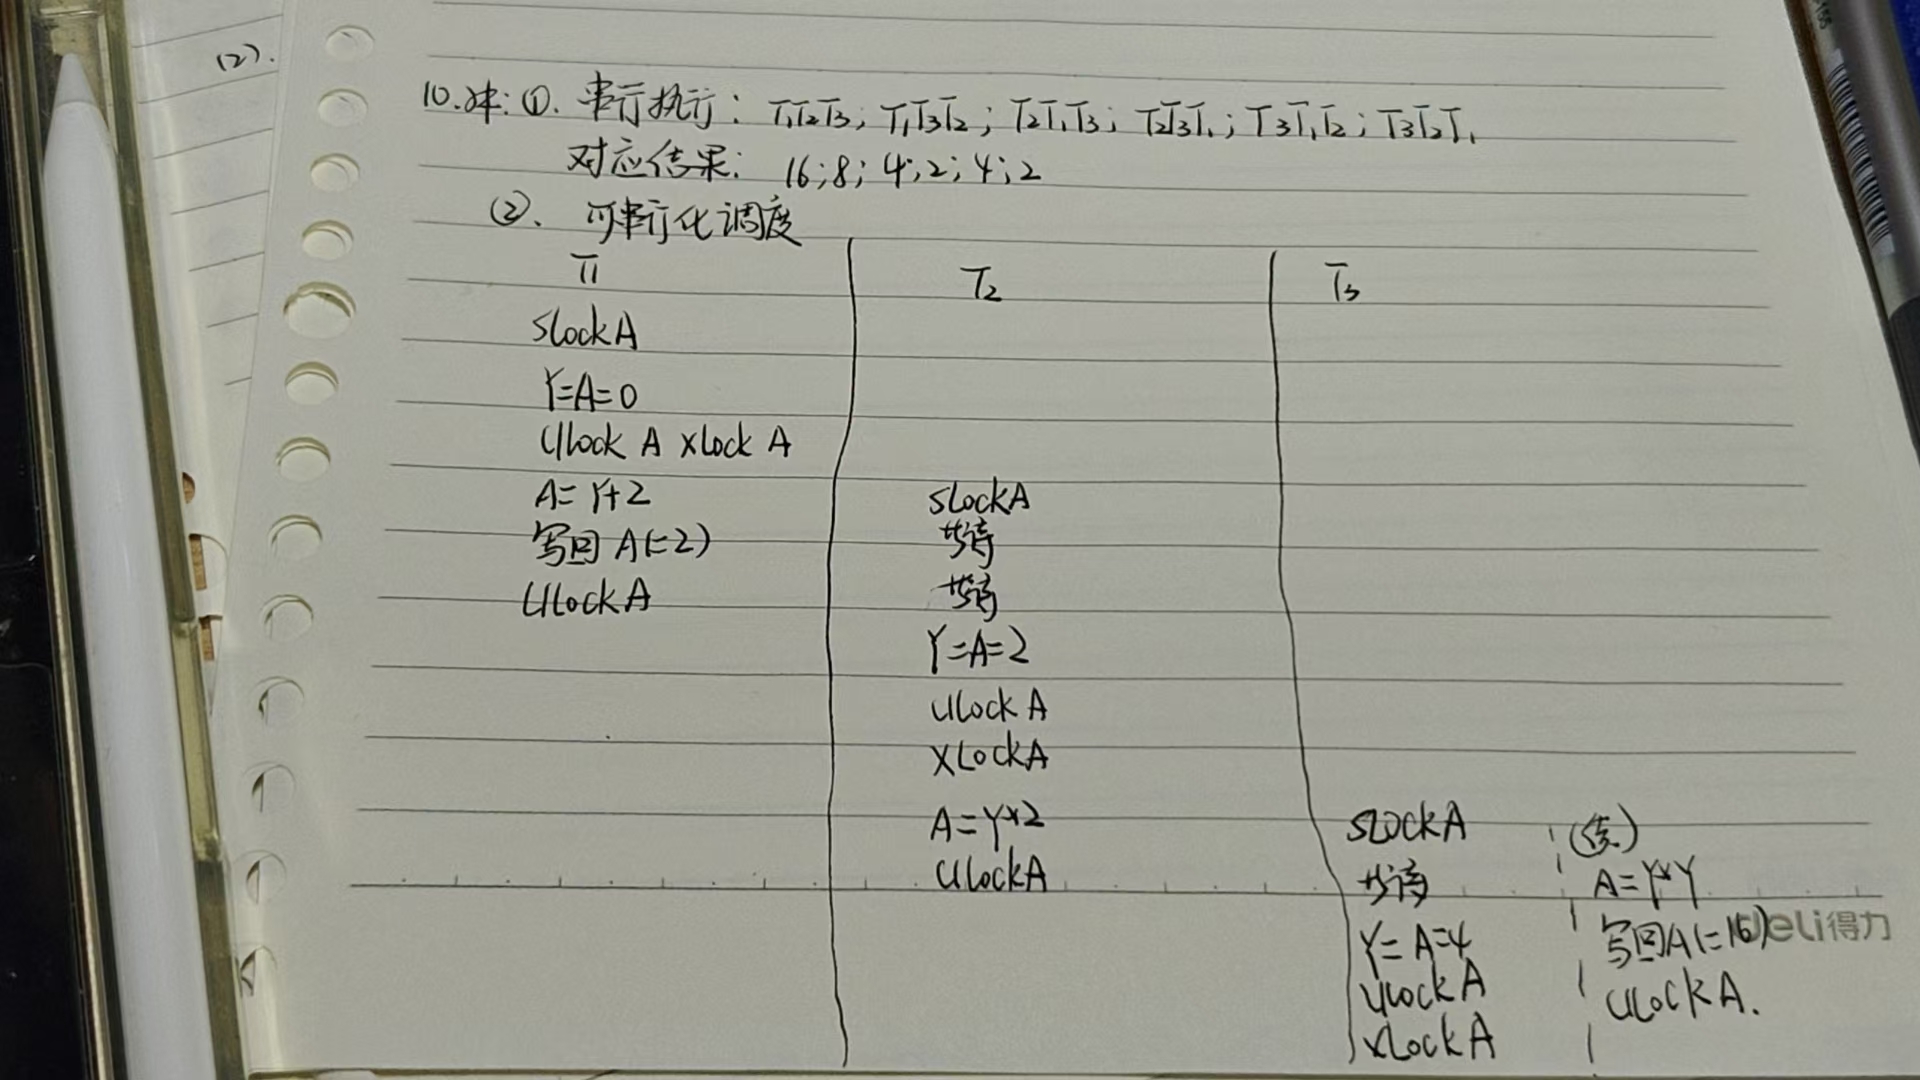 (2).
10.冲:①. 串行执行: T₁T₂T₃; T₁T₃T₂; T₂T₁T₃; T₂T₃T₁; T₃T₁T₂; T₃T₂T₁
对应结果: 16;8; 4;2;4;2
②. 可串行化调度
T₁ T₂ T₃
SLockA
Y=A=0
ULock A XLock A
A=Y+2 SLockA
写回A(=2) 等待
ULockA 等待
Y=A=2
ULockA
XLockA
A=Y*2 SLOCKA (续)
ULockA 等待 A=Y*Y
Y=A=4 写回A(=16)
deli得力
ULockA ULockA.
XLockA